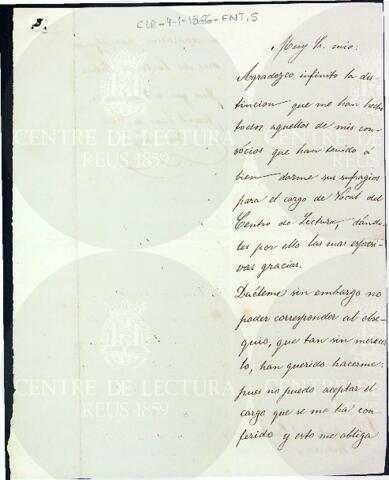 8.
CLR-4-1-1886-ENT.5
Muy Sr. mio:
Agradezco infinito la dis-
tincion que me han hecho
todos aquellos de mis con-
socios que han tenido á
bien darme sus sufragios
para el cargo de Vocal del
Centro de Lectura, dándo-
les por ello las mas espresi-
vas gracias.
Duéleme sin embargo no
poder corresponder al obse-
quio, que tan sin merecer-
lo, han querido hacerme;
pues no puedo aceptar el
cargo que se me ha con-
ferido y esto me obliga
CENTRE DE LECTURA
REUS 1859
CENTRE DE LECTURA
REUS 1859